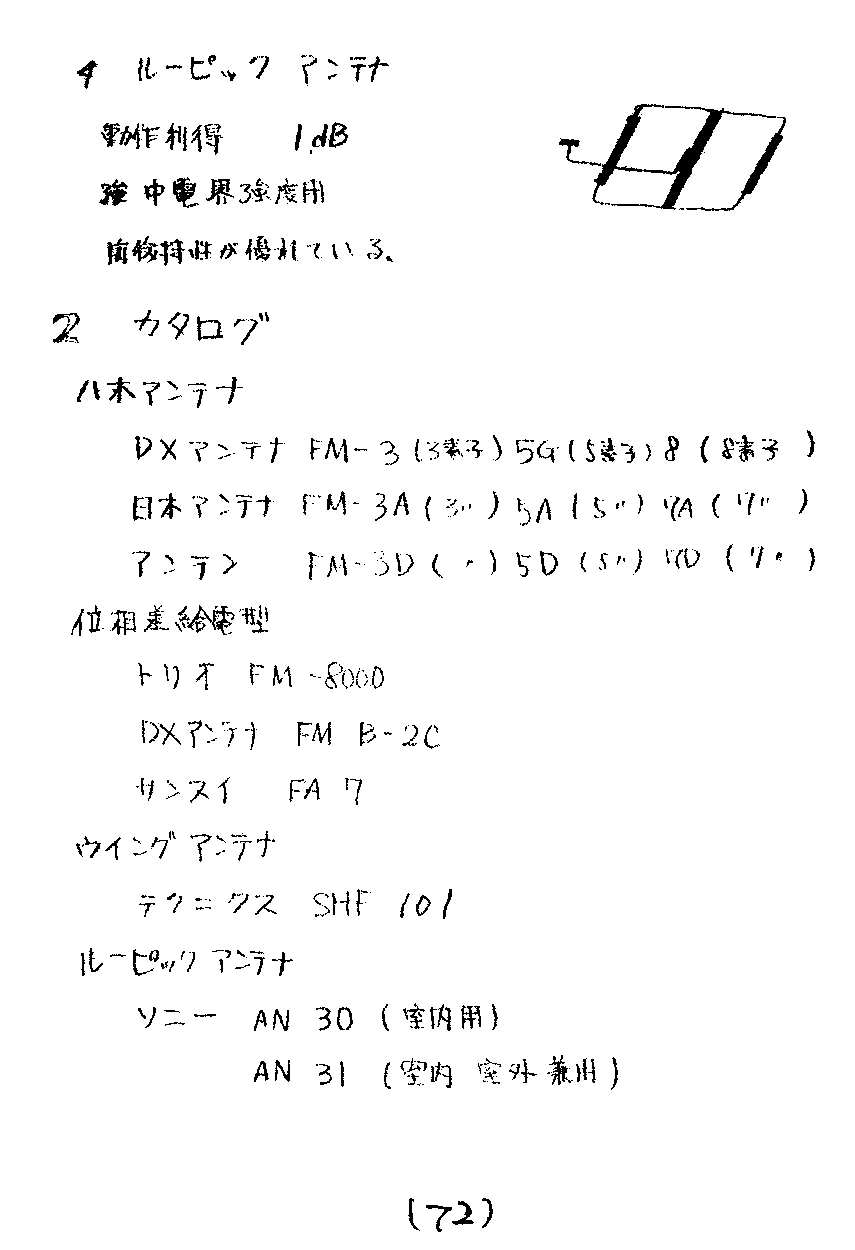 4 ルーピック アンテナ
動作利得 1dB
強中電界強度用
前後特性が優れている。
2 カタログ
八木アンテナ
DXアンテナ FM-3(3素子)5G(5素子)8(8素子)
日本アンテナ FM-3A(3〃)5A(5〃)7A(7〃)
アンテン FM-3D(〃)5D(5〃)7D(7〃)
位相差給電型
トリオ FM-8000
DXアンテナ FM B-2C
サンスイ FA 7
ウイングアンテナ
テクニクス SHF 101
ルーピックアンテナ
ソニー AN 30 (室内用)
AN 31 (室内 室外兼用)
(72)